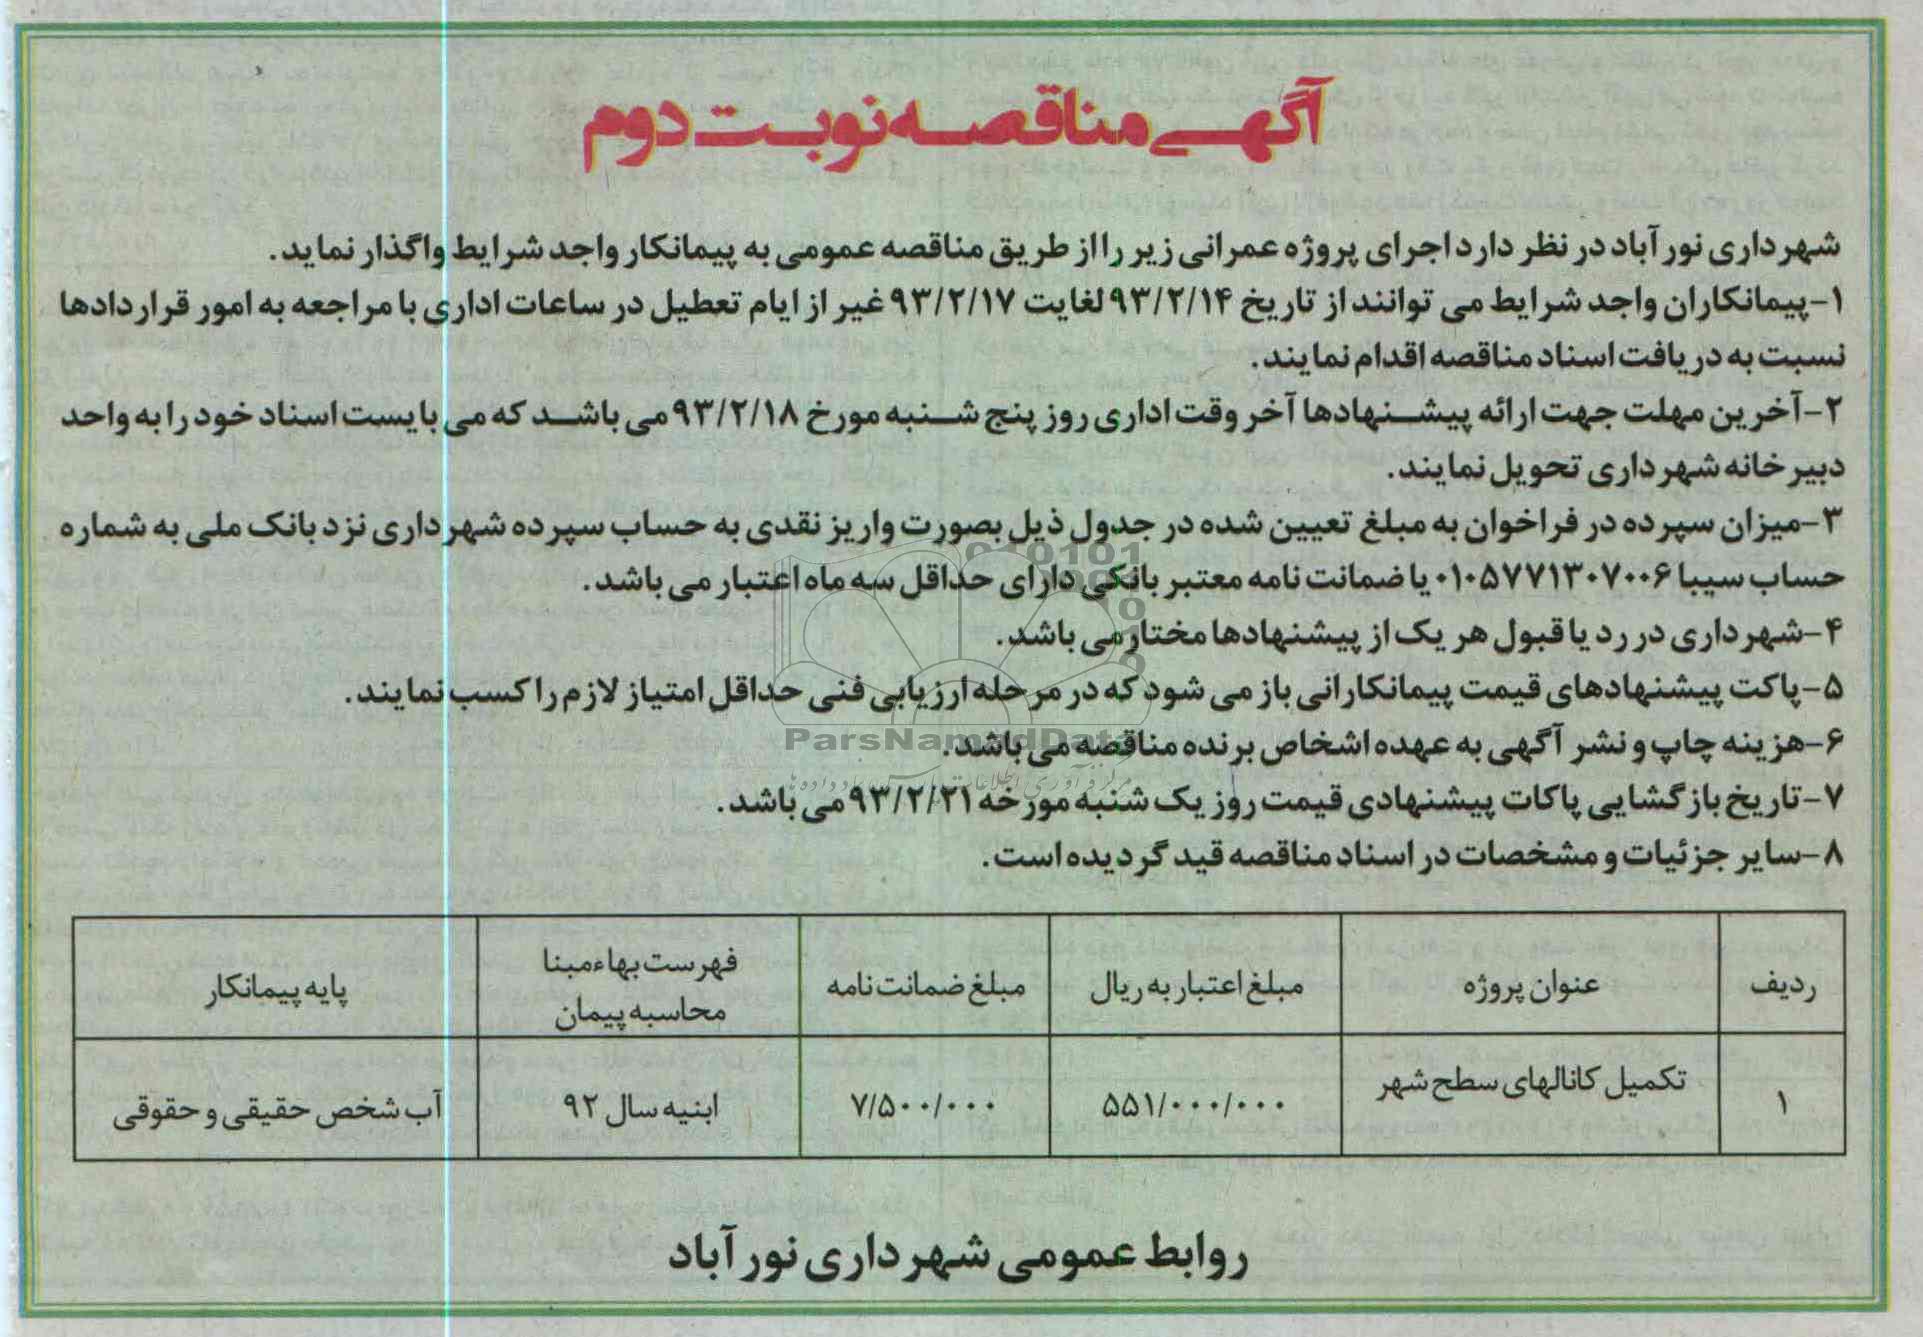 آگهی مناقصه نوبت دوم
شهرداری نورآباد در نظر دارد اجرای پروژه عمرانی زیر را از طریق مناقصه عمومی به پیمانکار واجد شرایط واگذار نماید.
۱-پیمانکاران واجد شرایط می توانند از تاریخ ۹۳/۲/۱۴ لغایت ۹۳/۲/۱۷ غیر از ایام تعطیل در ساعات اداری با مراجعه به امور قراردادها
نسبت به دریافت اسناد مناقصه اقدام نمایند.
۲-آخرین مهلت جهت ارائه پیشنهادها آخر وقت اداری روز پنج شنبه مورخ ۹۳/۲/۱۸ می باشد که می بایست اسناد خود را به واحد
دبیرخانه شهرداری تحویل نمایند.
۳-میزان سپرده در فراخوان به مبلغ تعیین شده در جدول ذیل بصورت واریز نقدی به حساب سپرده شهرداری نزد بانک ملی به شماره
حساب سیبا ۰۱۰۵۷۷۱۳۰۷۰۰۶ یا ضمانت نامه معتبر بانکی دارای حداقل سه ماه اعتبار می باشد.
۴-شهرداری در رد یا قبول هر یک از پیشنهادها مختار می باشد.
۵-پاکت پیشنهادهای قیمت پیمانکارانی باز می شود که در مرحله ارزیابی فنی حداقل امتیاز لازم را کسب نمایند.
۶-هزینه چاپ و نشر آگهی به عهده اشخاص برنده مناقصه می باشد.
ParsNamadData
۷-تاریخ بازگشایی پاکات پیشنهادی قیمت روز یک شنبه مورخه ۹۳/۲/۲۱ می باشد.
۸-سایر جزئیات و مشخصات در اسناد مناقصه قید گردیده است.
ردیف عنوان پروژه مبلغ اعتبار به ریال مبلغ ضمانت نامه فهرست بهاء مبنا محاسبه پیمان پایه پیمانکار
۱ تکمیل کانالهای سطح شهر ۵۵۱/۰۰۰/۰۰۰ ۷/۵۰۰/۰۰۰ ابنیه سال ۹۲ آب شخص حقیقی و حقوقی
روابط عمومی شهرداری نورآباد